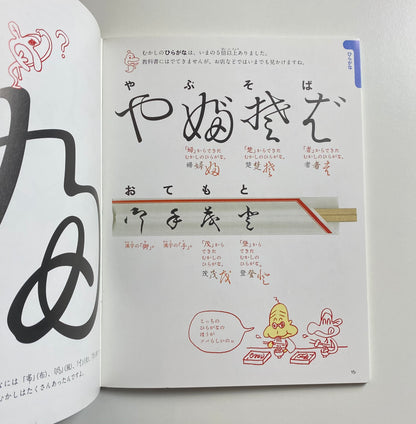 むかしのひらがなは、いまの5倍以上ありました。
教科書にはでてきませんが、お店などではいまでも見かけますね。
ひらがな
や ぶ そ ば
「婦」からできた
むかしのひらがな。
「楚」からできた
むかしのひらがな。
「者」からできた
むかしのひらがな。
おてもと
漢字の「御」。
漢字の「手」。
「茂」から
できた
むかしの
ひらがな。
「登」から
できた
むかしの
ひらがな。
こっちの
ひらがなの
ほうが
ソバらしいのぅ。
むかしはたくさんあったんですよ。
15